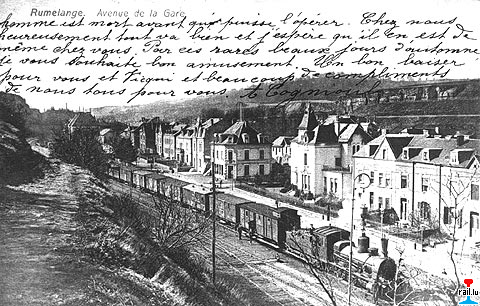 Rumelange. Avenue de la Gare
homme est mort avant qu'on puisse l'opérer. Chez nous
heureusement tout va bien et j'espère qu'il en est de
même chez vous. Par ces rares beaux jours d'automne
je vous souhaite bon amusement. Un bon baiser
pour vous et et beaucoup de compliments
de nous tous pour vous.
rail.lu